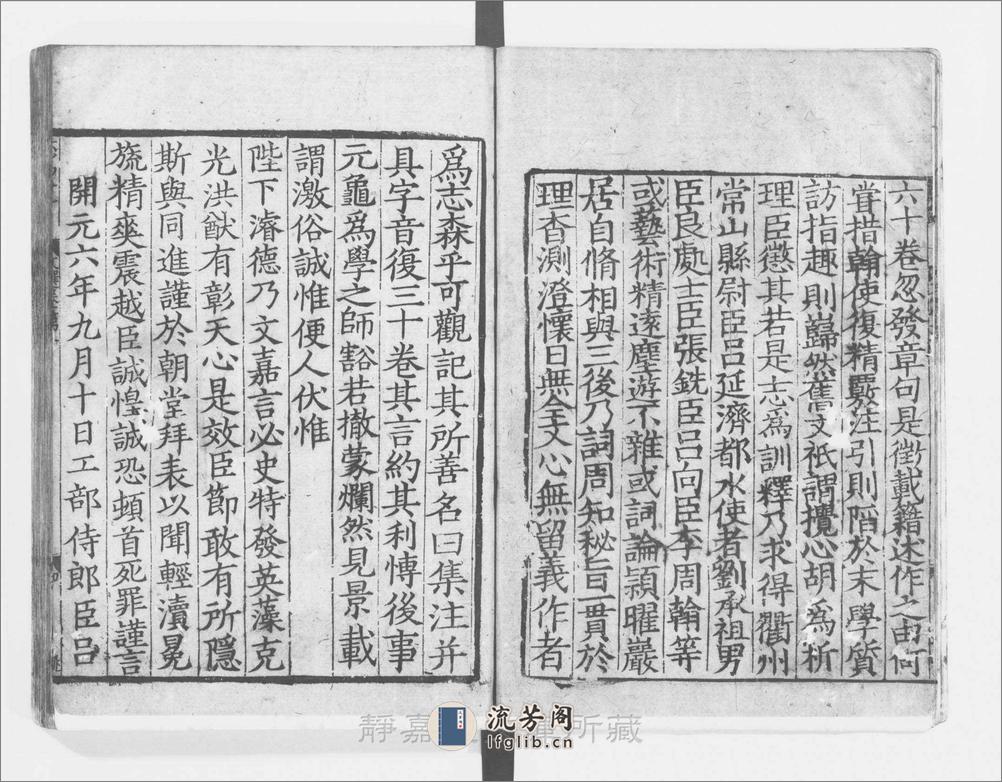 六十卷忽發章句是徵載籍述作之由何
甞措翰使復精覈注引則陷於末學質
訪指趣則巋然舊文祇謂攪心胡爲析
理臣懲其若是志爲訓釋乃求得衢州
常山縣尉臣呂延濟都水使者劉承祖男
臣良處士臣張銑臣呂向臣李周翰等
或藝術精遠塵遊不雜或詞論穎曜巖
居自脩相與三復乃詞周知秘旨一貫於
理杳測澄懷目無全文心無留義作者
爲志森乎可觀記其所善名曰集注并
具字音復三十卷其言約其利博後事
元龜爲學之師豁若撤蒙爛然見景載
謂激俗誠惟便人伏惟
陛下濬德乃文嘉言必史特發英藻克
光洪猷有彰天心是效臣節敢有所隱
斯與同進謹於朝堂拜表以聞輕瀆冕
旒精爽震越臣誠惶誠恐頓首死罪謹言
開元六年九月十日工部侍郎臣呂
靜嘉 所藏
流芳阁
lfglib.cn